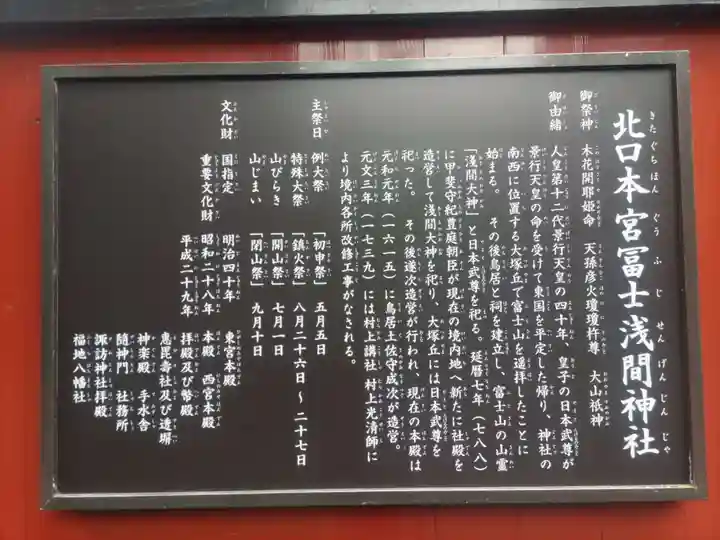 北口本宮冨士浅間神社
きたぐちほんぐうふじせんげんじんじゃ
御祭神　木花開耶姫命　天孫彦火瓊瓊杵尊　大山祇神
御由緒　人皇第十二代景行天皇の四十年、皇子の日本武尊が
景行天皇の命を受けて東国を平定した帰り、神社の
南西に位置する大塚丘で富士山を遥拝したことに
始まる。　その後鳥居と祠を建立し、富士山の山霊
「浅間大神」と日本武尊を祀る。延暦七年（七八八）
に甲斐守紀豊庭朝臣が現在の境内地へ新たに社殿を
造営して浅間大神を祀り、大塚丘には日本武尊を
祀った。　その後逐次造営が行われ、現在の本殿は
元和元年（一六一五）に鳥居土佐守成次が造営。
元文三年（一七三九）には村上講社 村上光清師に
より境内各所改修工事がなされる。
主祭日　例大祭　「初申祭」　五月五日
特殊大祭　「鎮火祭」　八月二十六日～二十七日
山びらき　「開山祭」　七月一日
山じまい　「閉山祭」　九月十日
文化財　国指定　明治四十年　東宮本殿
重要文化財　昭和二十八年　本殿　西宮本殿
平成二十九年　拝殿及び幣殿
恵毘壽社及び透塀
神楽殿　手水舎
随神門　社務所
諏訪神社拝殿
福地八幡社